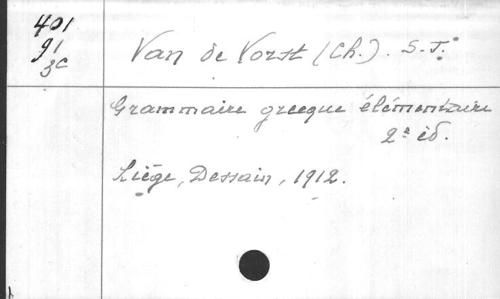 401
91
3c
Van de Vorst (Ch.). S.J.
Grammaire grecque élémentaire
2e éd.
Liège, Dessain, 1912.